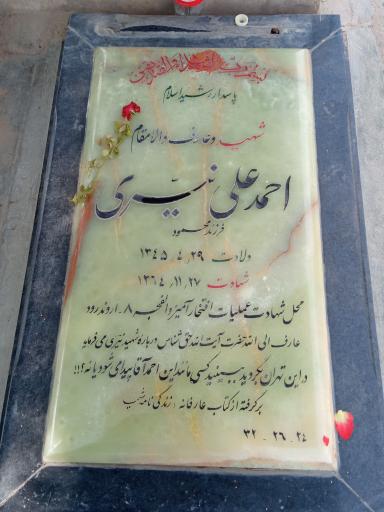 بسم رب الشهداء و الصدیقین
پاسدار رشید اسلام
شهید و عارف والامقام
احمد علی نیّری
فرزند محمود
ولادت ۲۹، ۴، ۱۳۴۵
شهادت ۲۷، ۱۱، ۱۳۶۴
محل شهادت عملیات افتخارآمیز والفجر ۸ - اروندرود
عارف الی الله حضرت آیت الله حق شناس درباره شهید نیّری می فرماید
در این تهران بگردید ببینید کسی مانند این احمد آقا پیدا می شود یا نه؟!!
برگرفته از کتاب عارفانه، زندگی نامه شهید
۲۴ - ۲۶ - ۳۲